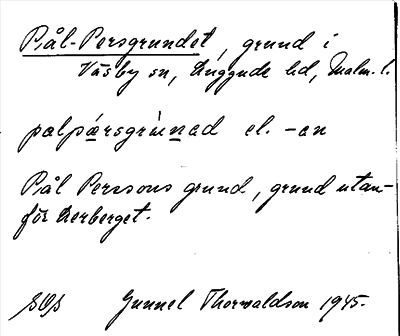 Pål-Persgrundet, grund i
Väsby sn, Luggude hd, Malm. l.
palpærsgrùnad el. -an
Pål Perssons grund, grund utan-
för Lerberget.
SOS Gunnel Thorwaldson 1945.